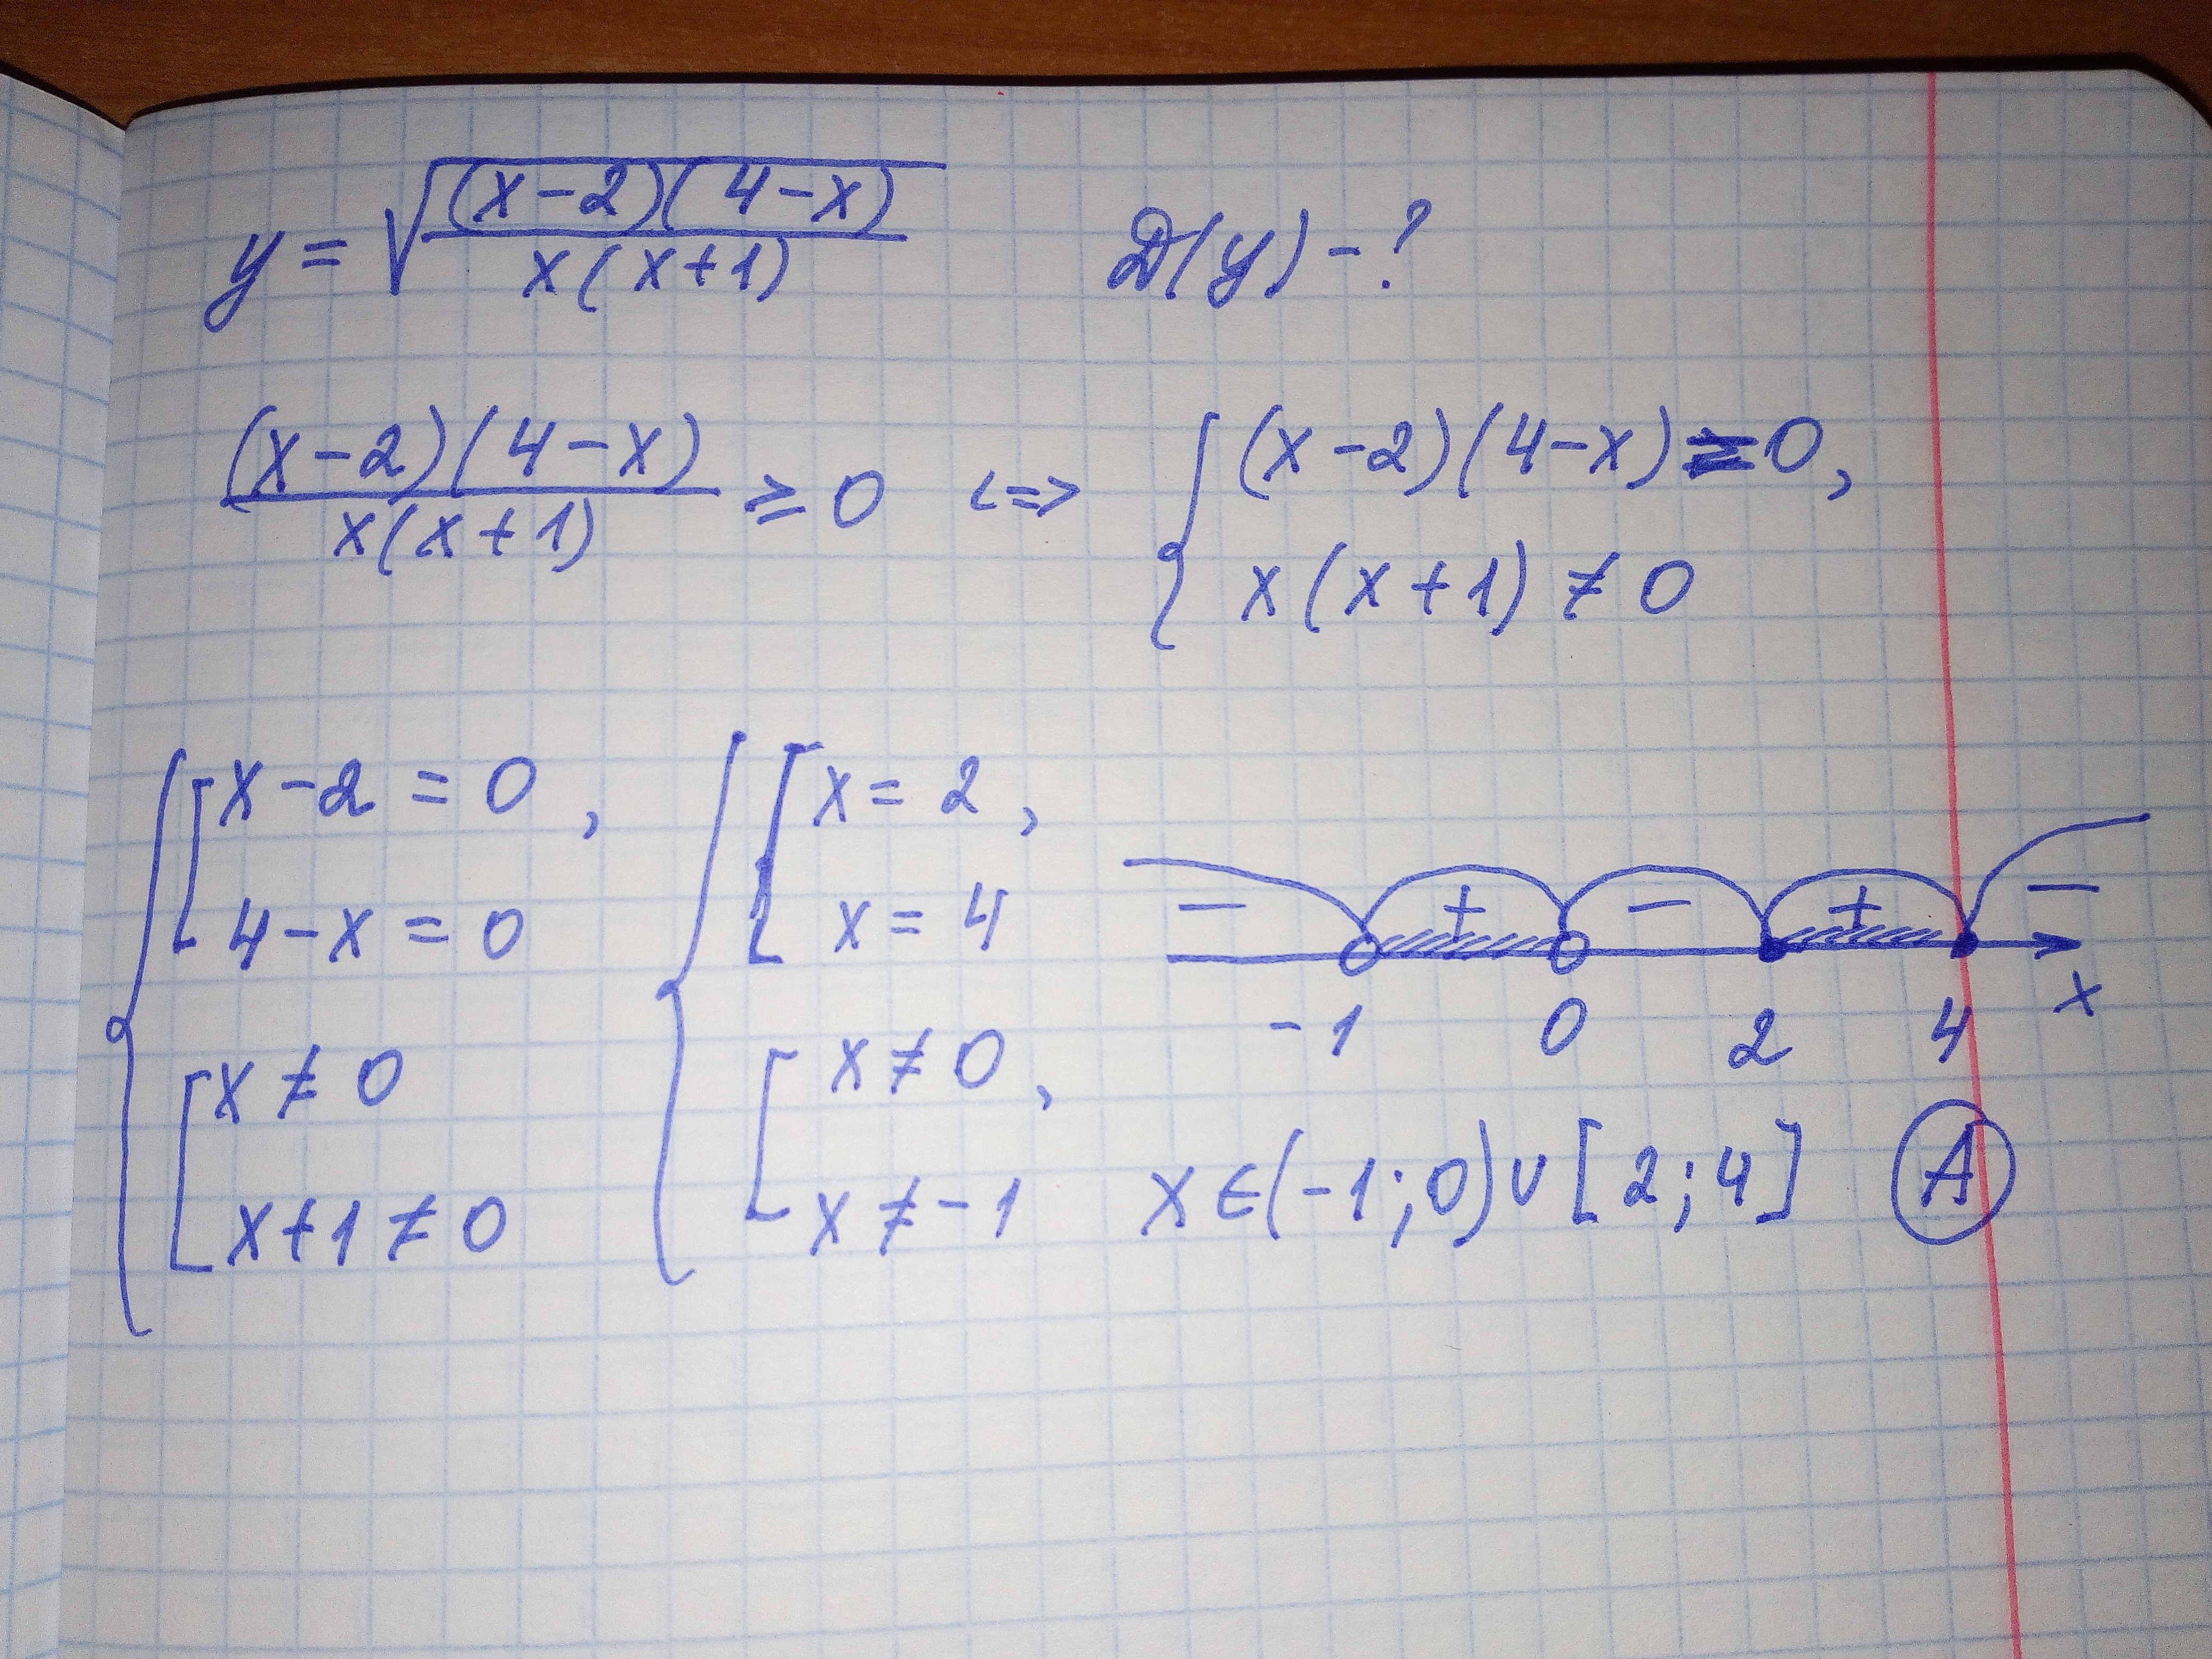 y = √((x-2)(4-x) / x(x+1))    D(y) - ?
(x-2)(4-x) / x(x+1) ≥ 0 <=> { (x-2)(4-x) = 0,
x(x+1) ≠ 0
{ [ x-2 = 0,
4-x = 0
[ x ≠ 0
x+1 ≠ 0
{ [ x = 2,
x = 4
[ x ≠ 0,
x ≠ -1
- + - + -
-1 0 2 4 x
x ∈ (-1; 0) ∪ [2; 4] A